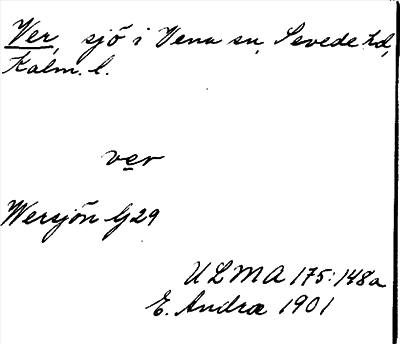 Ver, sjö i Vena sn, Sevede hd,
Kalm. l.
ver
Wersjön G29
ULMA 175:148a
E. Andræ 1901